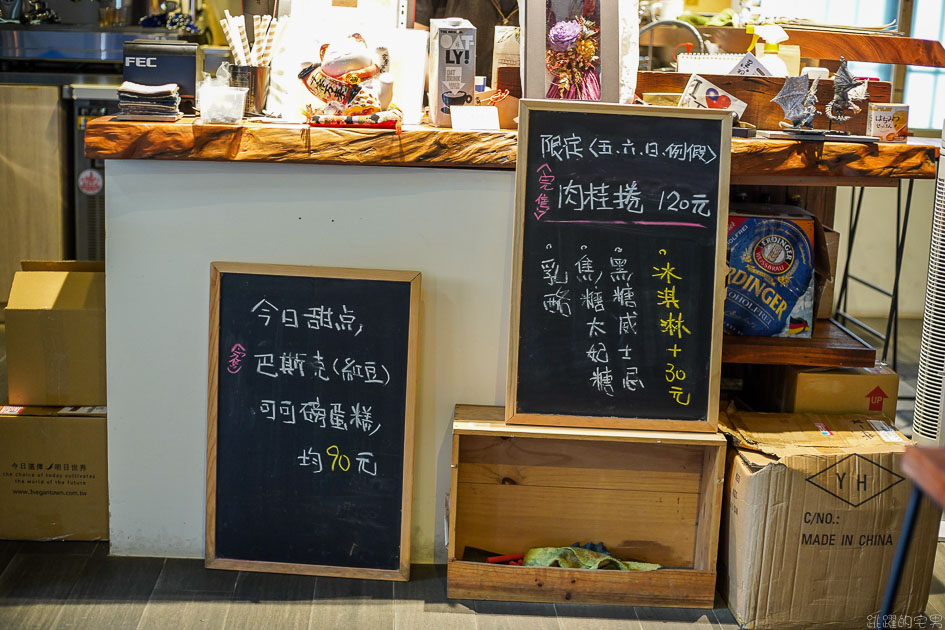 FEC
OATLY!
限定〈五.六.日.例假〉
完售
肉桂捲 120元
冰淇淋+30元
黑糖威士忌
焦糖太妃糖
乳酪
今日甜点
完售
巴斯克(紅豆)
可可磅蛋糕
均90元
ERDINGER
今日選擇 明日世界
the choice of today cultivates
the world of the future
www.ivegantown.com.tw
UP
YH
C/NO.:
MADE IN CHINA
跳躍的宅男